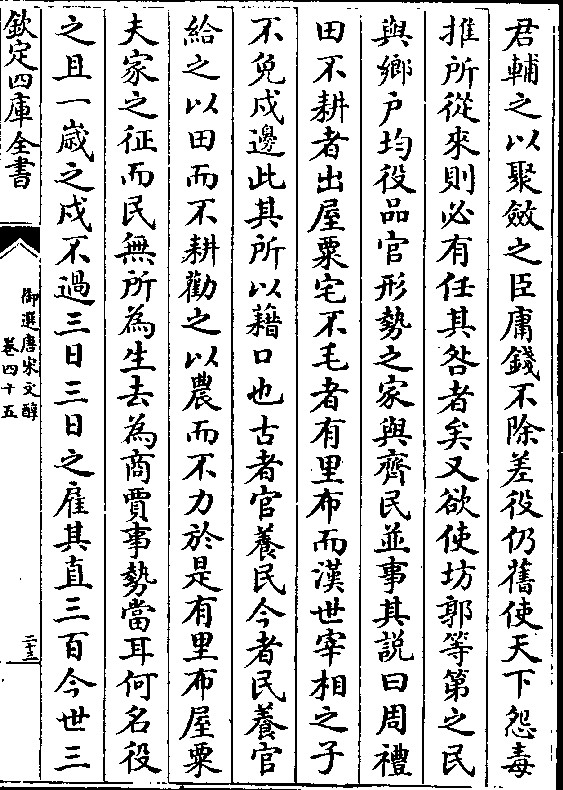 君輔之以聚斂之臣庸錢不除差役仍舊使天下怨毒
推所從來則必有任其咎者矣又欲使坊郭等第之民
與鄉户均役品官形勢之家與齊民並事其説曰周禮
田不耕者出屋粟宅不毛者有里布而漢世宰相之子
不免戍邊此其所以藉口也古者官養民今者民養官
給之以田而不耕勸之以農而不力於是有里布屋粟
夫家之征而民無所為生去為商賈事勢當耳何名役
之且一嵗之戍不過三日三日之雇其直三百今世三
欽定四庫全書
御選唐宋文醇
卷四十五
二十三